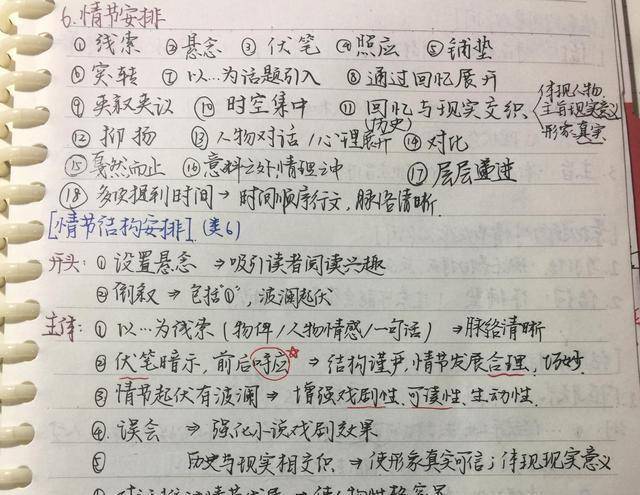 6.情节安排
①线索 ②悬念 ③伏笔 ④照应 ⑤铺垫
⑥突转 ⑦以…为话题引入 ⑧通过回忆展开
⑨夹叙夹议 ⑩时空集中 ⑪回忆与现实交织、体现人物
(历史) 主旨现实意义
形象真实
⑫抑扬 ⑬人物对话/心理展开 ⑭对比
⑮戛然而止 ⑯意料之外情理之中 ⑰层层递进
⑱多次提到时间→时间顺序行文,脉络清晰.
[情节结构安排].(类6)
开头:①设置悬念→吸引读者阅读兴趣
②倒叙→包括"①" 波澜起伏
主体:①以…为线索(物件/人物情感/一句话)→脉络清晰
②伏笔暗示,前后呼应☆→结构谨严,情节发展合理,巧妙
③情节起伏有波澜→增强戏剧性、可读性、生动性.
④误会→强化小说戏剧效果
⑤ 历史与现实相交织→使形象真实可信;体现现实意义